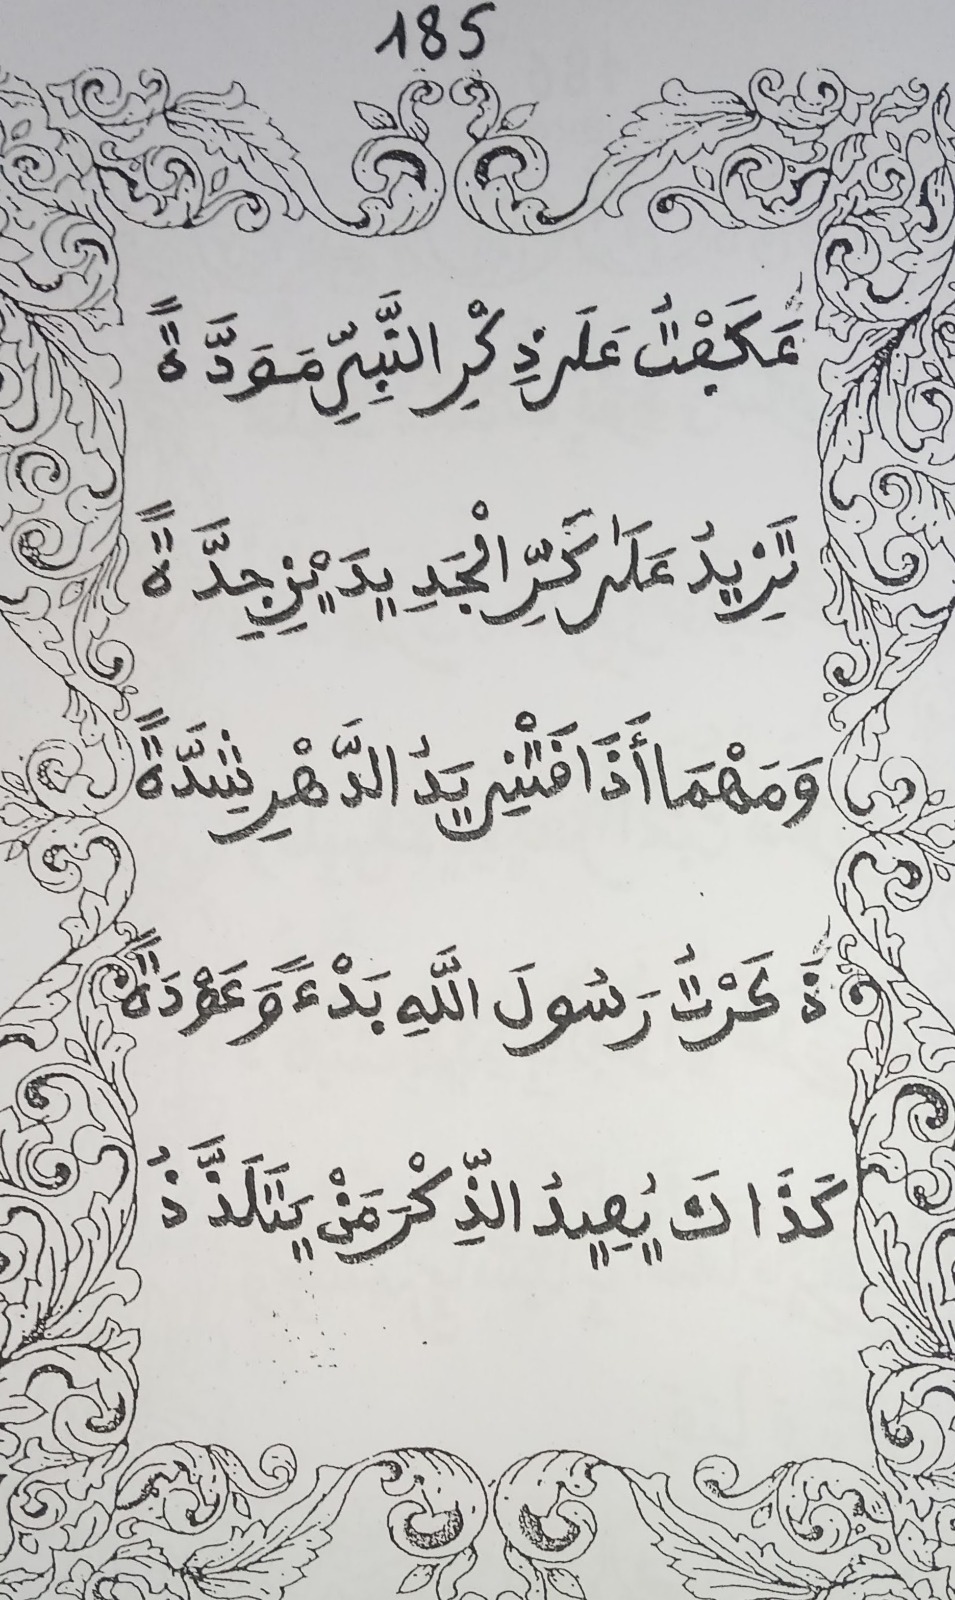 185
عَكَفْتُ عَلَى ذِكْرِ النَّبِيِّ مَوَدَّةً
تَزِيدُ عَلَى كَرِّ الْجَدِيدَيْنِ جِدَّةً
وَمَهْمَا أَذَاقَتْنِي يَدُ الدَّهْرِ شِدَّةً
ذَكَرْتُ رَسُولَ اللَّهِ بَدْءً وَعَوْدَةً
كَذَاكَ يُعِيدُ الذِّكْرَ مَنْ يَتَلَذَّذُ